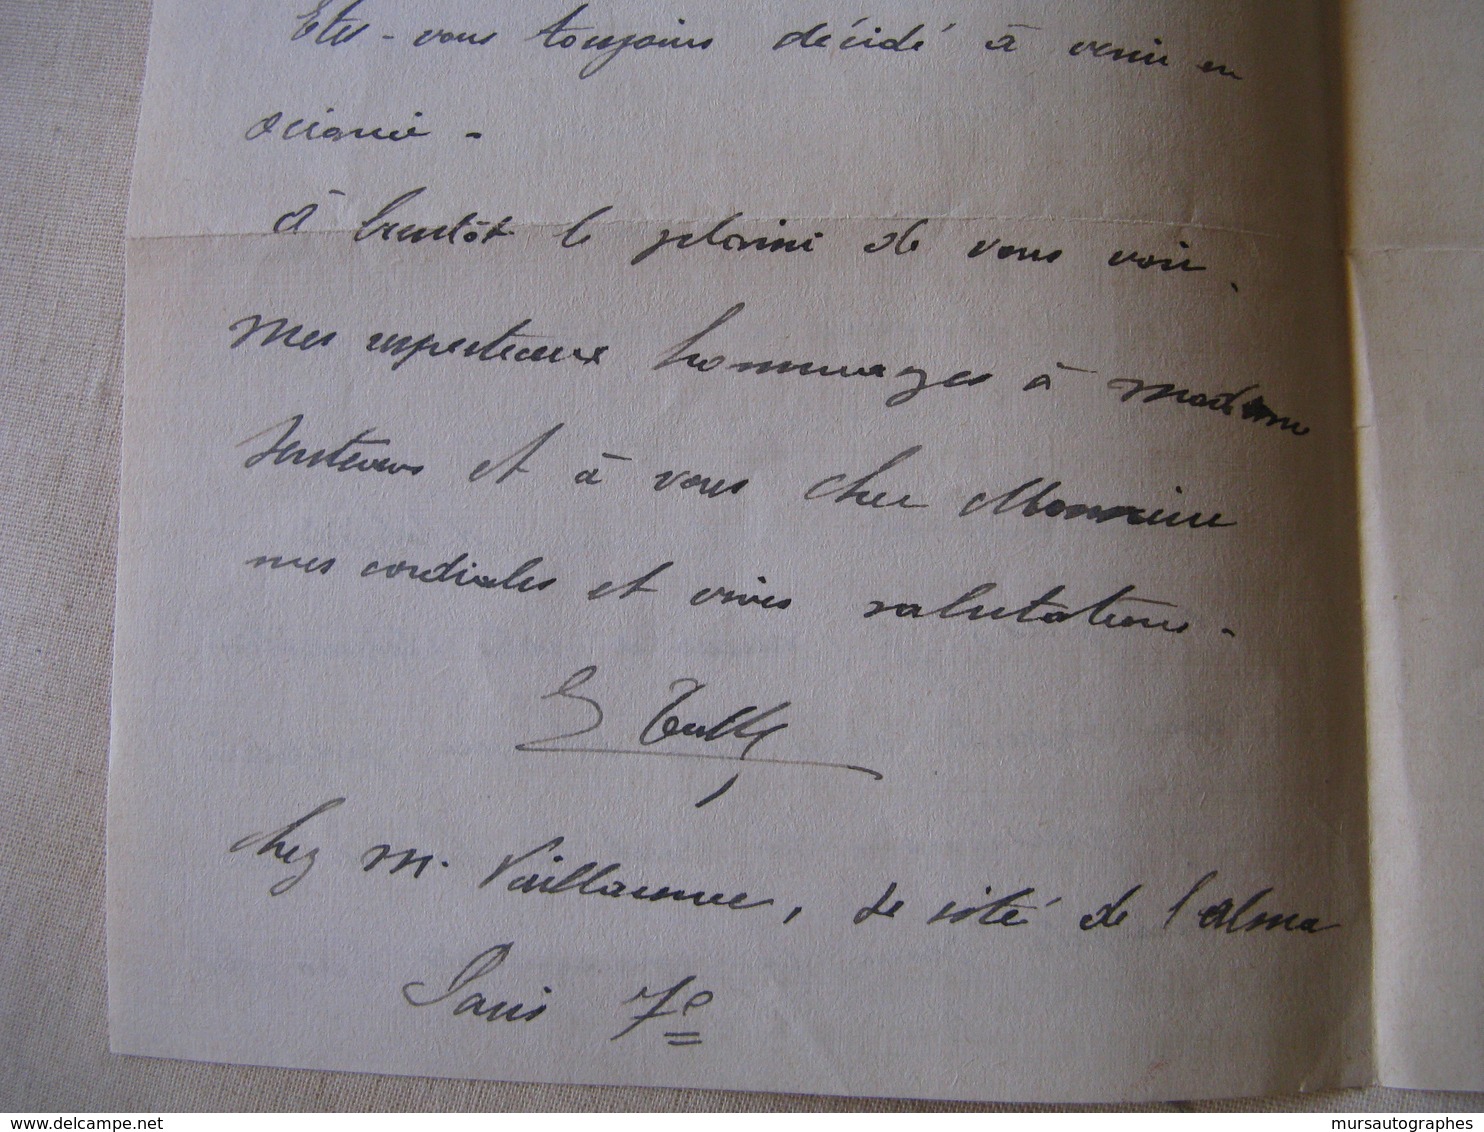 Êtes-vous toujours décidé à venir en
océanie -
à bientôt le plaisir de vous voir.
Mes respectueux hommages à Madame
et à vous cher Monsieur
mes cordiales et vives salutations -
chez M. Vaillaume, cité de l'alma
Paris 7e
mursautographes